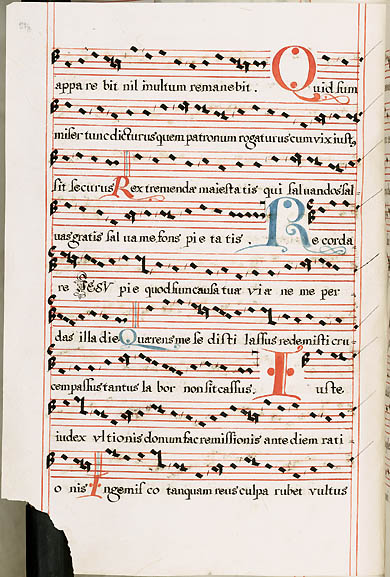 appa re bit nil inultum remanebit. Quid sum
miser tunc dicturus quem patronum rogaturus cum vix iust,
sit securus Rex tremendæ maiesta tis qui saluandos sal-
uas gratis sal ua me fons pie ta tis. Re corda
re Jesu pie quod sum causa tuæ viæ ne me per
das illa die Quærens me se disti lassus redemisti cru-
cem passus tantus la bor non sit cassus. I uste
iudex vltionis donum fac remissionis ante diem rati
o nis Ingemis co tanquam reus culpa rubet vultus